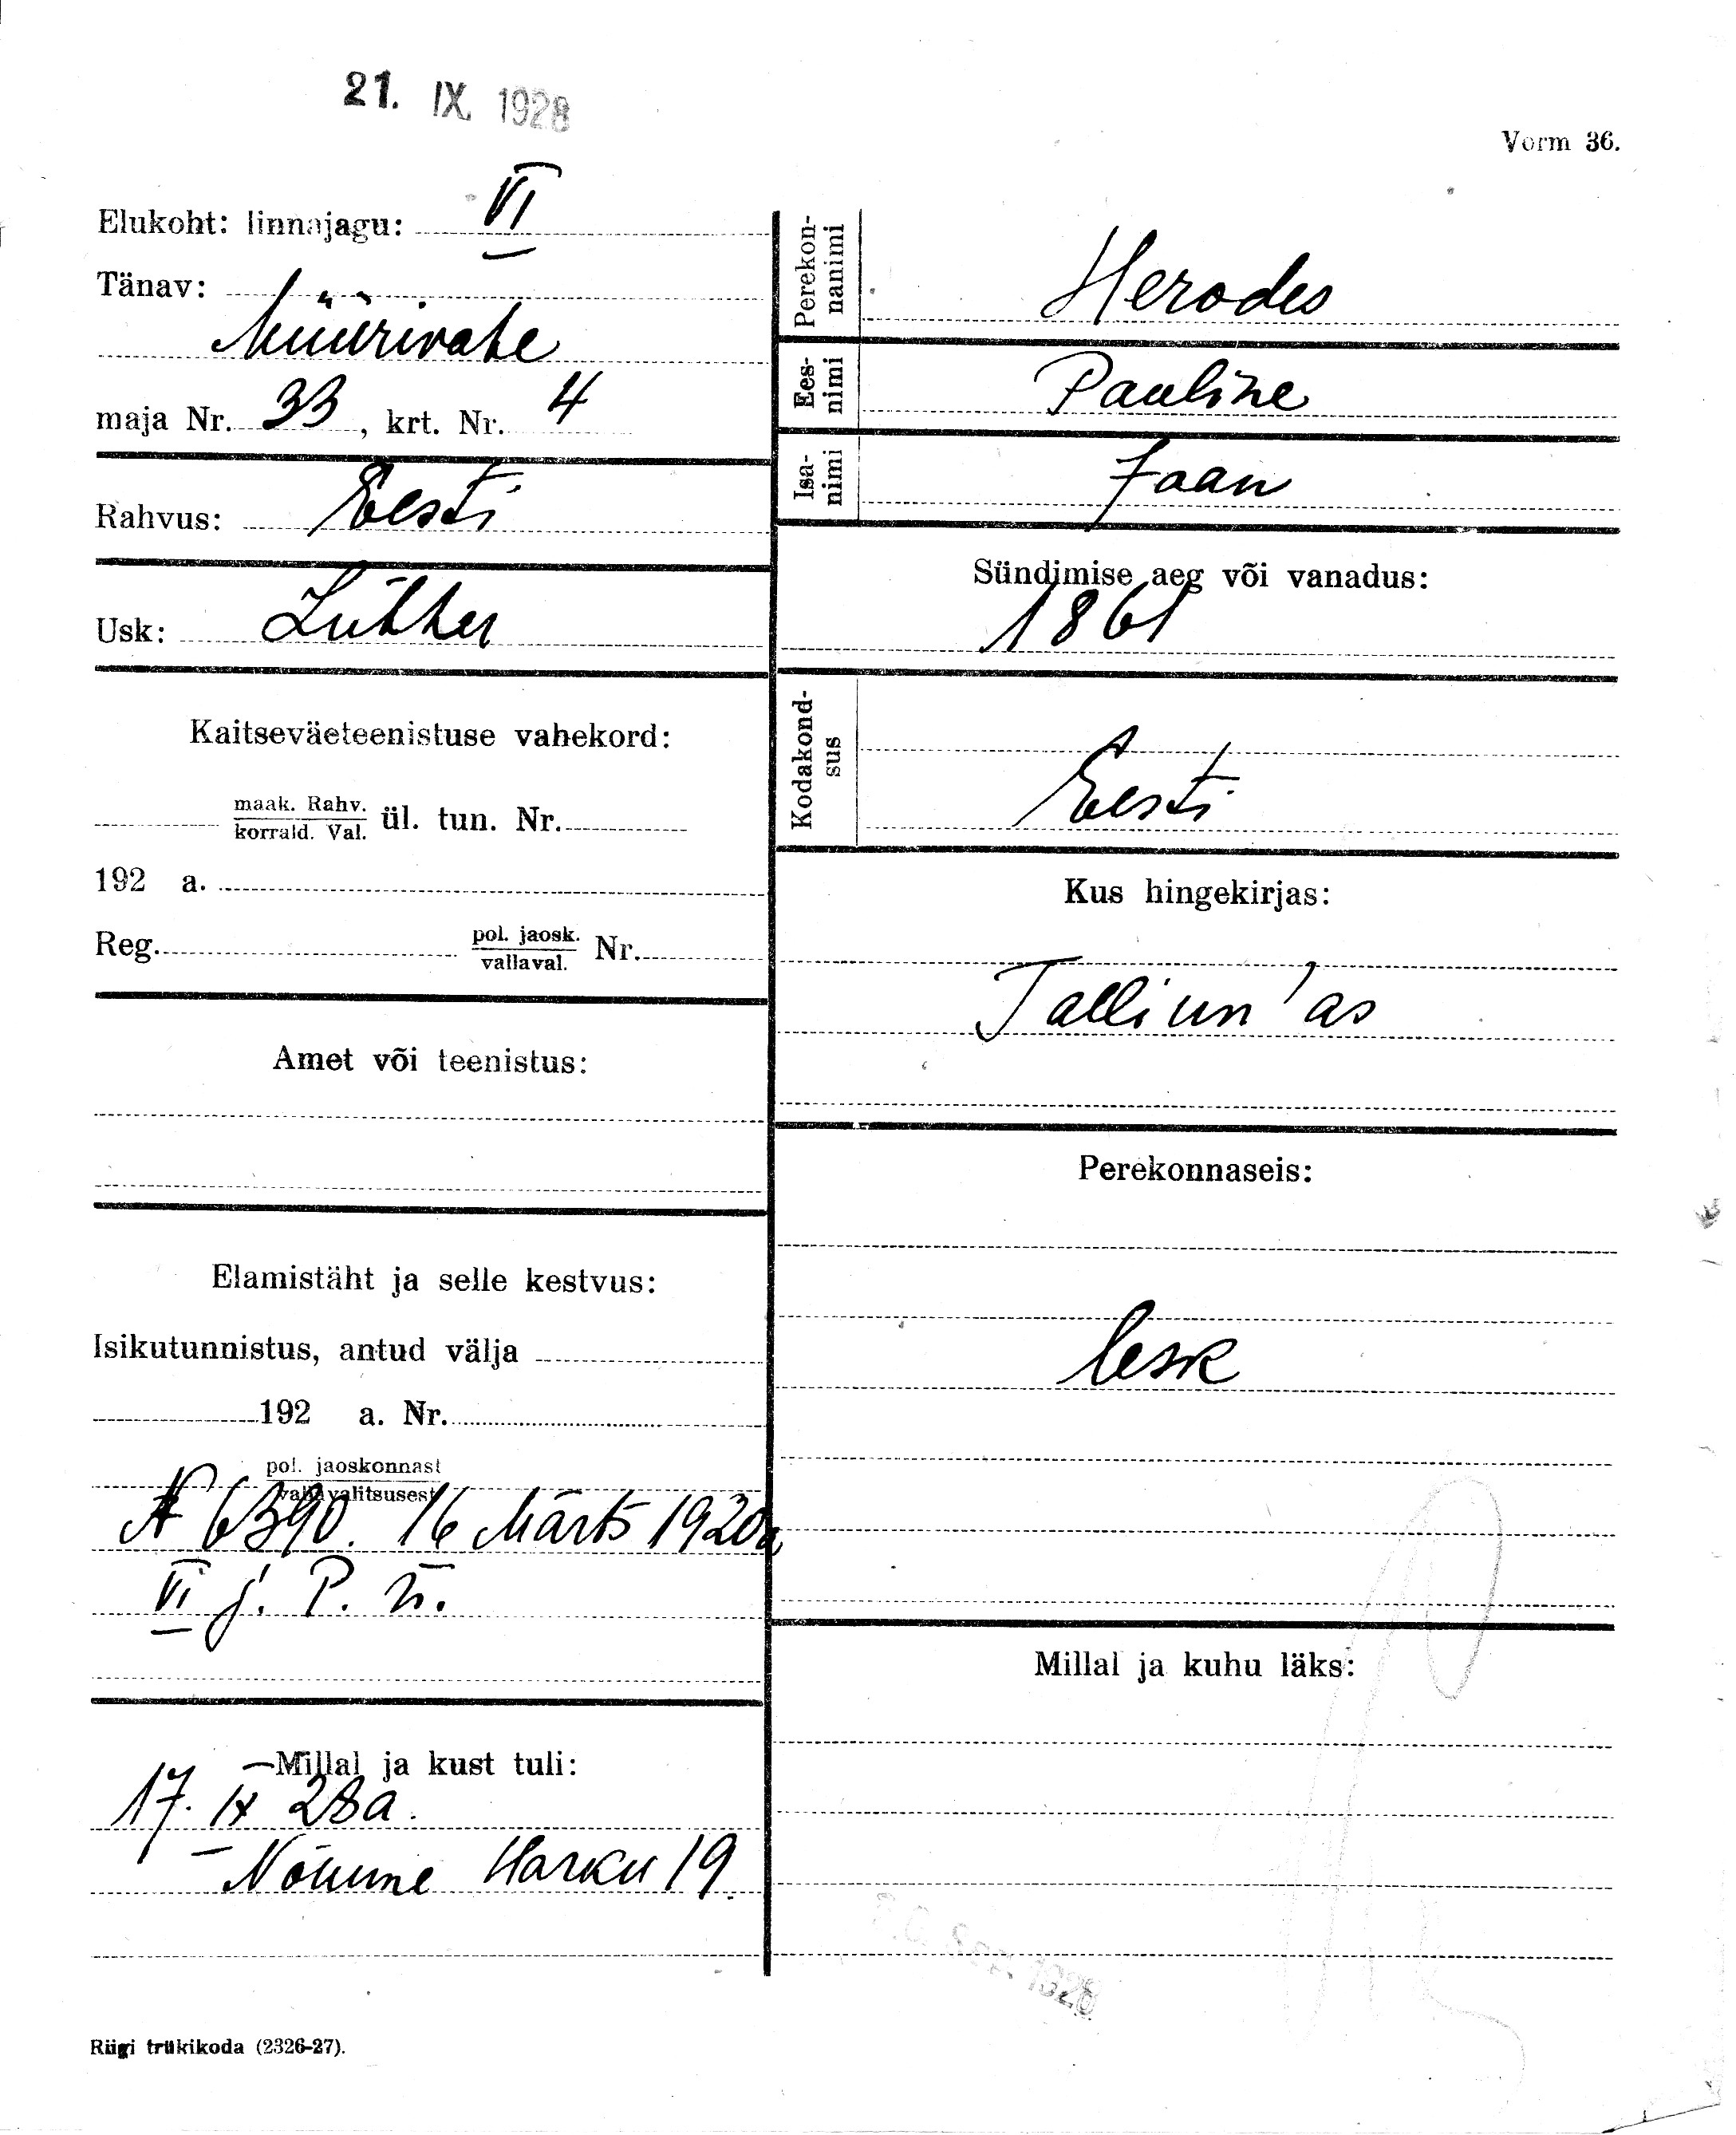 21. IX. 1928
Vorm 36.
Elukoht: linnajagu: VI
Tänav:
Müürivahe
maja Nr. 33, krt. Nr. 4
Rahvus: Eesti
Usk: Luther
Kaitseväeteenistuse vahekord:
maak. Rahv.
korrald. Val. ül. tun. Nr.
192 a.
Reg. pol. jaosk. Nr.
vallaval.
Amet või teenistus:
Elamistäht ja selle kestvus:
Isikutunnistus, antud välja
192 a. Nr.
pol. jaoskonnast
vallavalitsusest
N 6390. 16 Märts 1920a
VI j. P. ü.
Millal ja kust tuli:
17. IX 28a.
Nõmme Harku 19.
Perekon-
nanimi
Herodes
Ees-
nimi
Pauline
Isa-
nimi
Jaan
Sündimise aeg või vanadus:
1861
Kodakond-
sus
Eesti
Kus hingekirjas:
Tallinn'as
Perekonnaseis:
lesk
Millal ja kuhu läks:
1928
Riigi trükikoda (2326-27).